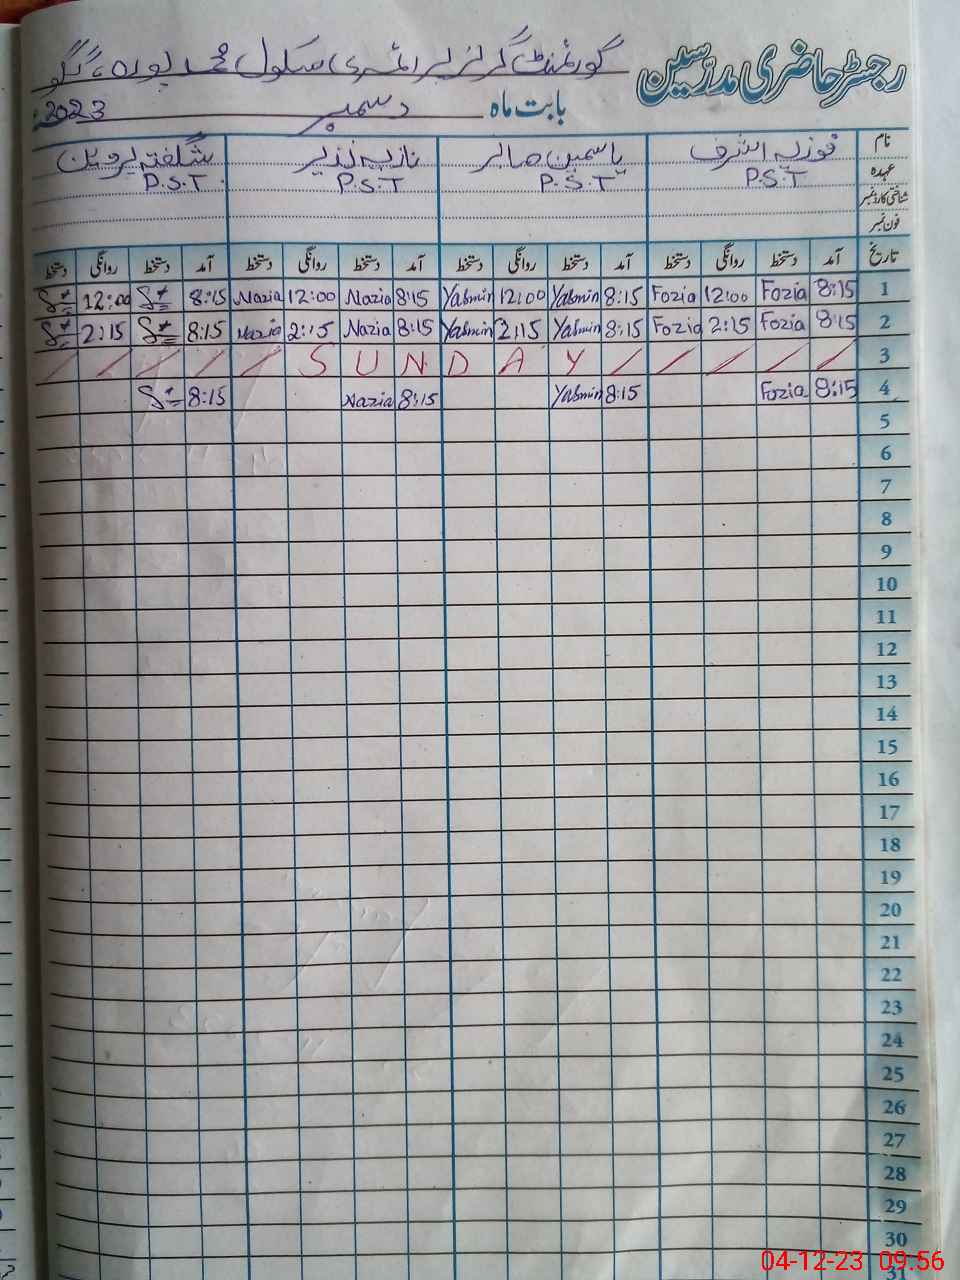 رجسٹر حاضری مدرسین گورنمنٹ گرلز پرائمری سکول محمد پورہ، گگو
بابت ماہ دسمبر 2023
نام فوزیہ اشرف یاسمین صابر نازیہ نذیر شگفتہ پروین
عہدہ P.S.T P.S.T P.S.T P.S.T
شناختی کارڈ نمبر
فون نمبر
تاریخ آمد دستخط روانگی دستخط آمد دستخط روانگی دستخط آمد دستخط روانگی دستخط آمد دستخط روانگی دستخط
1 8:15 Fozia 12:00 Fozia 8:15 Yasmin 12:00 Yasmin 8:15 Nazia 12:00 Nazia 8:15 12:00
2 8:15 Fozia 2:15 Fozia 8:15 Yasmin 2:15 Yasmin 8:15 Nazia 2:15 Nazia 8:15 2:15
/ / / / / S U N D A Y / / / / / 3
4 8:15 Fozia 8:15 Yasmin 8:15 Nazia 8:15
5
6
7
8
9
10
11
12
13
14
15
16
17
18
19
20
21
22
23
24
25
26
27
28
29
30
31
04-12-23 09:56